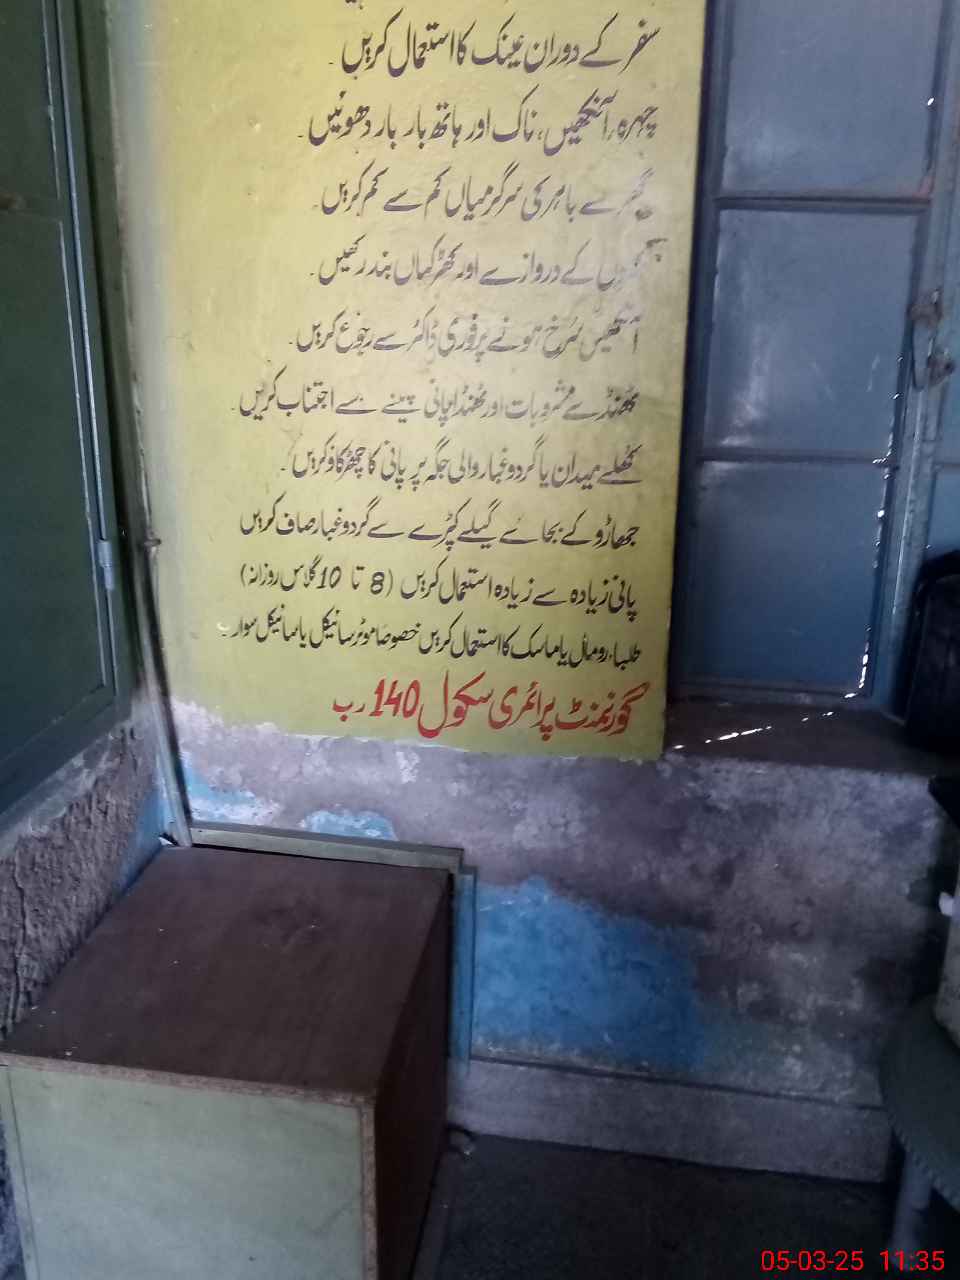 سفر کے دوران عینک کا استعمال کریں۔
چہرہ، آنکھیں، ناک اور ہاتھ بار بار دھوئیں۔
گھر سے باہر کی سرگرمیاں کم سے کم کریں۔
کے دروازے اور کھڑکیاں بند رکھیں۔
آنکھیں سُرخ ہونے پر فوری ڈاکٹر سے رجوع کریں۔
ٹھنڈے مشروبات اور ٹھنڈا پانی پینے سے اجتناب کریں۔
کُھلے میدان یا گرد و غبار والی جگہ پر پانی کا چھڑکاؤ کریں۔
جھاڑو کے بجائے گیلے کپڑے سے گرد و غبار صاف کریں
پانی زیادہ سے زیادہ استعمال کریں (8 تا 10 گلاس روزانہ)
طلباء رومال یا ماسک کا استعمال کریں خصوصاً موٹر سائیکل یا سائیکل سوار۔
گورنمنٹ پرائمری سکول 140 رب
05-03-25 11:35